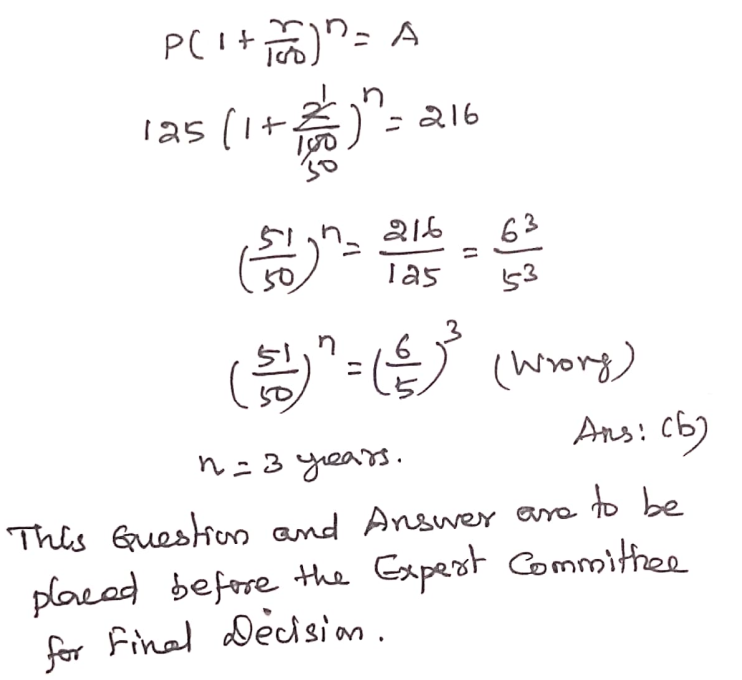 P(1+r/100)^n = A
125 (1+2/100)^n = 216
1
50
(51/50)^n = 216/125 = 6^3/5^3
(51/50)^n = (6/5)^3 (Wrong)
Ans: (b)
n = 3 years.
This Question and Answer are to be
placed before the Expert Committee
for Final Decision.